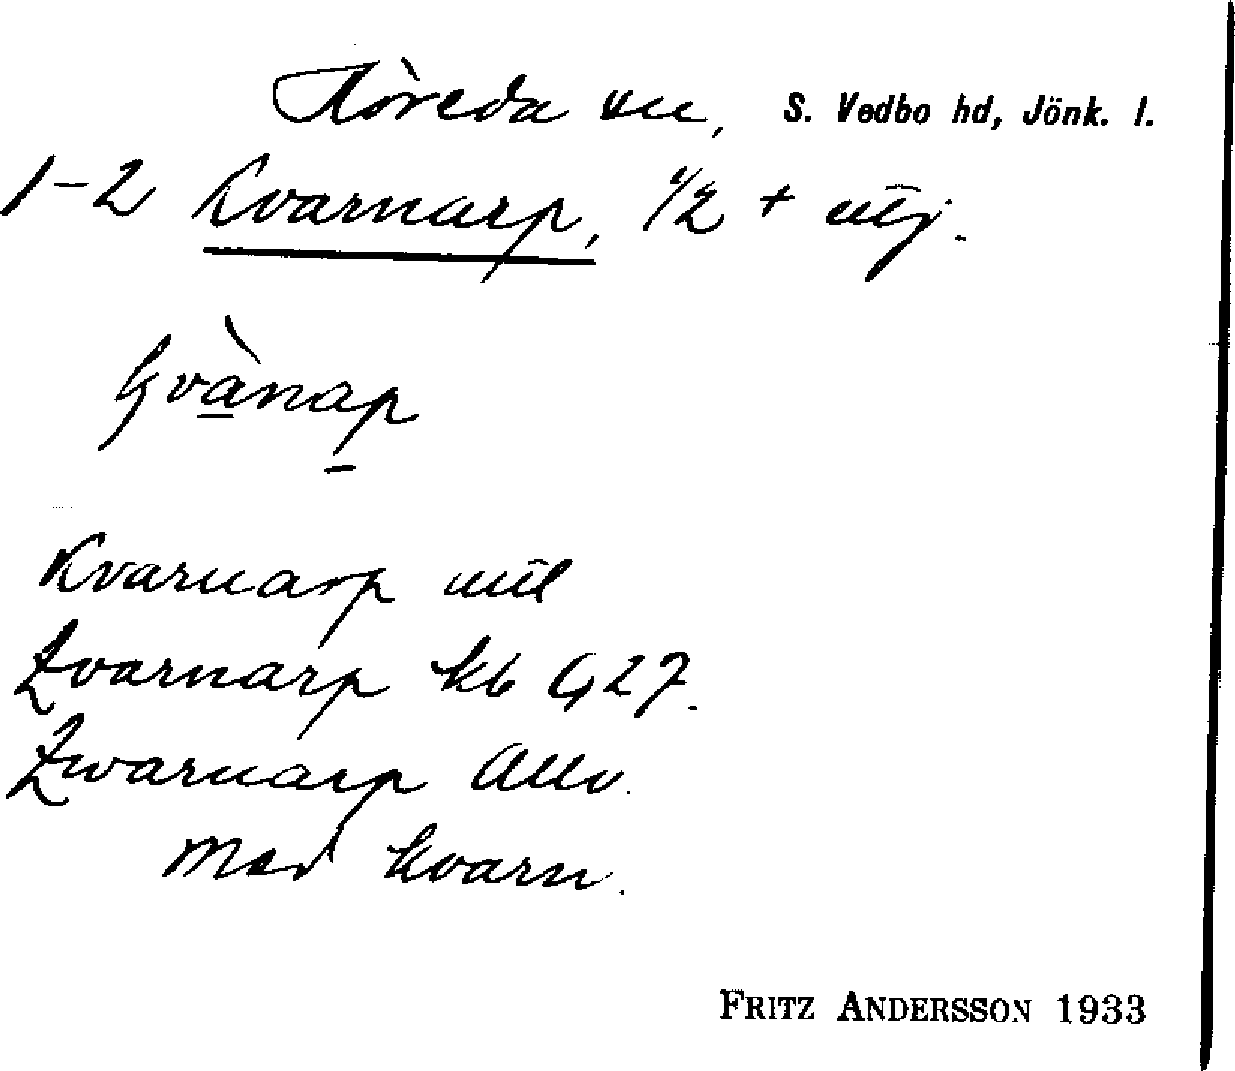 Höreda sn, S. Vedbo hd, Jönk. l.
1-2 Kvarnarp, 1/2 + utj.
Kvarnarp
Zvarnarp kb 1727.
Zwarnarp Allv.
Med kvarn.
FRITZ ANDERSSON 1933